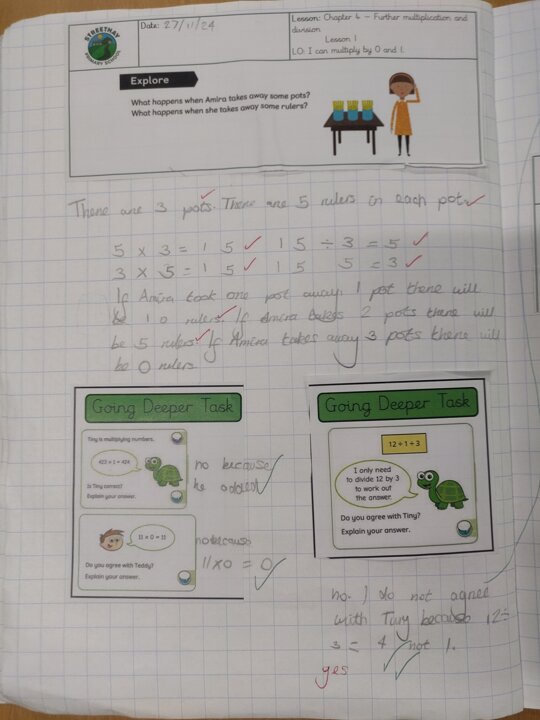 STREETHAY
PRIMARY SCHOOL
Date: 27/11/24
Lesson: Chapter 4 – Further multiplication and
division
Lesson 1
LO: I can multiply by 0 and 1.
Explore
What happens when Amira takes away some pots?
What happens when she takes away some rulers?
There are 3 pots. There are 5 rulers in each pot.
5 x 3 = 15 15 ÷ 3 = 5
3 x 5 = 15 15 5 = 3
If Amira took one pot away 1 pot there will
be 10 rulers. If Amira takes 2 pots there will
be 5 rulers. If Amira takes away 3 pots there will
be 0 rulers
Going Deeper Task
Tiny is multiplying numbers.
423 × 1 = 424
Is Tiny correct?
Explain your answer.
no because
he added
11 × 0 = 11
Do you agree with Teddy?
Explain your answer.
no because
11x0 = 0
Going Deeper Task
12 ÷ 1 ÷ 3
I only need
to divide 12 by 3
to work out
the answer.
Do you agree with Tiny?
Explain your answer.
no. I do not agree
with Tiny because 12÷
3 = 4 not 1.
yes